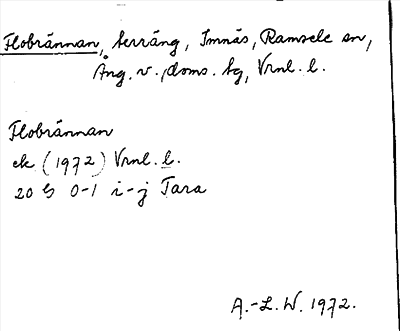 Flobrännan, terräng, Imnäs, Ramsele sn,
Ång. v. doms. bg, Vrnl. l.
Flobrännan
ek (1972) Vrnl. l.
20 G 0-1 i-j Tara
A.-L.W. 1972.